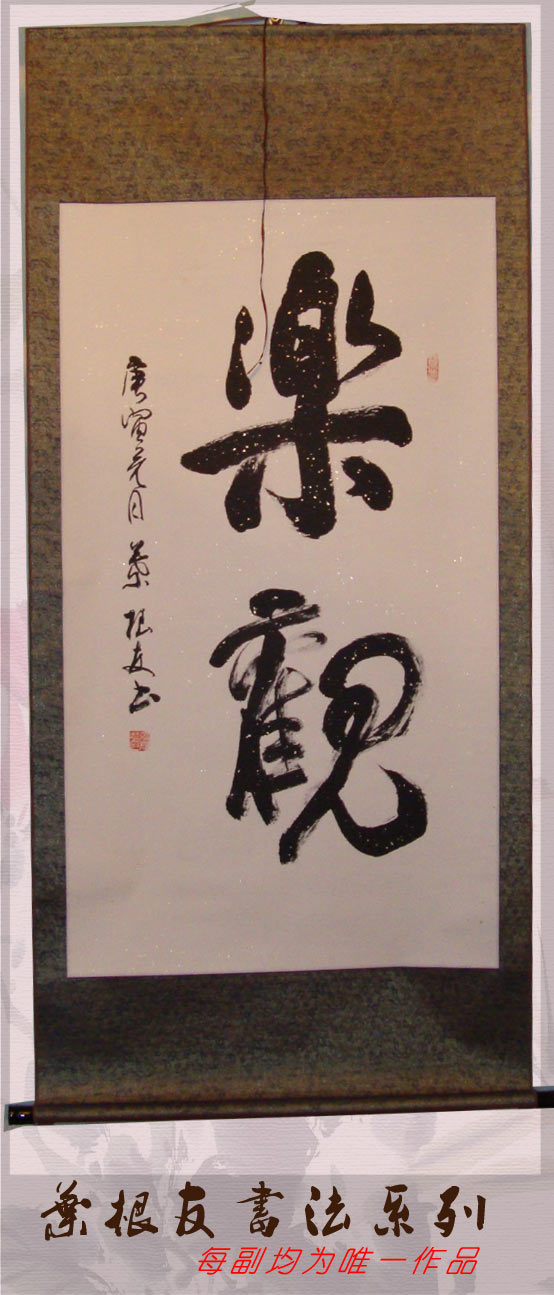 楽觀
庚寅元月 葉根友书
葉根友書法系列
每副均为唯一作品